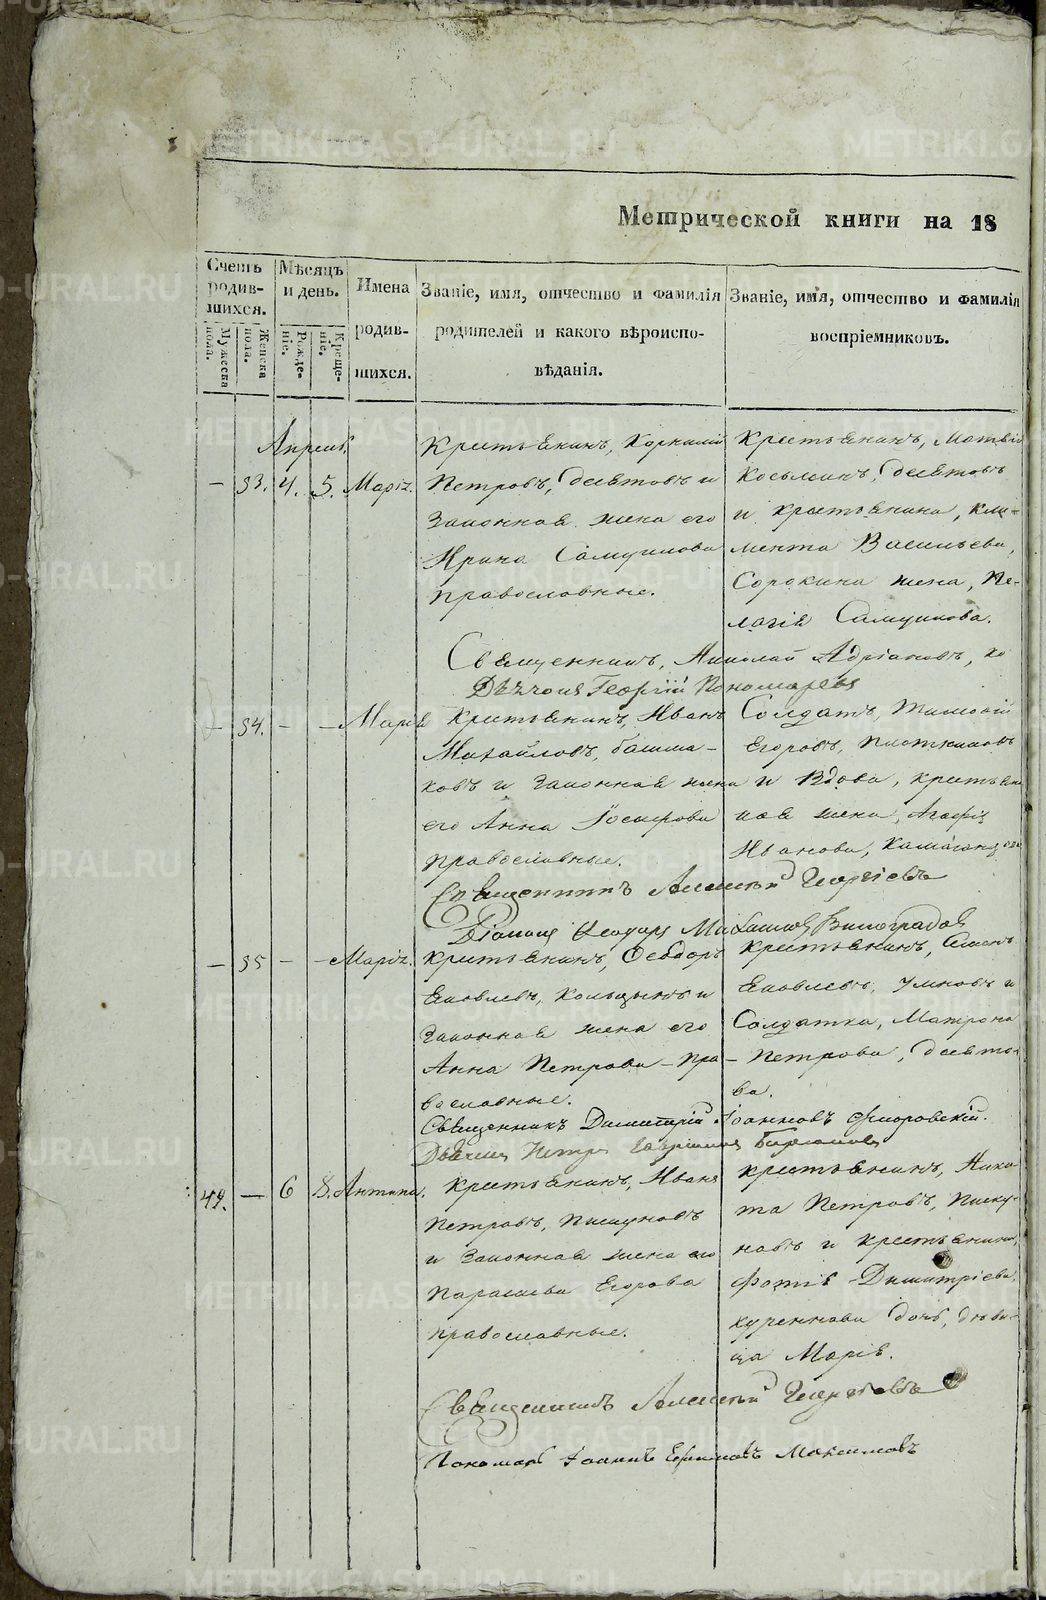 Метрической книги на 18
Счетъ родив-шихся.
Мужеска пола.
Женска пола.
Мѣсяцъ и день.
Рожде-ніе.
Креще-ніе.
Имена родив-шихся.
Званіе, имя, отчество и фамилія
родителей и какого вѣроиспо-
вѣданія.
Званіе, имя, отчество и фамилія
воспріемниковъ.
Апрель.
— 33. 4. 5. Марія.
Крестьянинъ, Корнилій
Петровъ, Десятовъ и
Законная жена его
Ирина Самуилова
православные.
Крестьянинъ, Матвій
Косьминъ, Десятовъ
и крестьянина, Кли-
мента Васильева,
Сорокина жена, Пе-
лагія Самуилова.
Священникъ, Николай Адріановъ,
Дьячокъ Георгій Пономаревъ
— 34. — — Марія
Крестьянинъ, Иванъ
Михайловъ, Башма-
ковъ и Законная жена
его Анна Іосифова
православные.
Солдатъ, Тимофій
Егоровъ, Плотниковъ
и Вдова, крестьян
ская жена, Агафія
Иванова,
Священникъ Алексѣй Георгіевъ
Діаконъ Ѳеодоръ Михаиловъ Виноградовъ
— 35 — — Марія.
Крестьянинъ, Ѳеодоръ
Яковлевъ, Кольцынъ и
Законная жена его
Анна Петрова — пра-
вославные.
Крестьянинъ, Симонъ
Яковлевъ, Умновъ и
Солдатка, Матрона
Петрова, Десято-
ва.
Священникъ Димитрій Іоанновъ Флоровскій.
Дьячекъ Петръ
42. — 6 8. Антипа.
Крестьянинъ, Иванъ
Петровъ, Пискуновъ
и Законная жена его
Параскева Егорова
православные.
Крестьянинъ, Ники-
та Петровъ, Писку-
новъ и крестьянина,
Фотія Димитріева,
дочь, дѣви-
ца Марія.
Священникъ Алексѣй Георгіевъ
Пономарь Іоаннъ Ефимовъ Максимовъ
METRIKI.GASO-URAL.RU